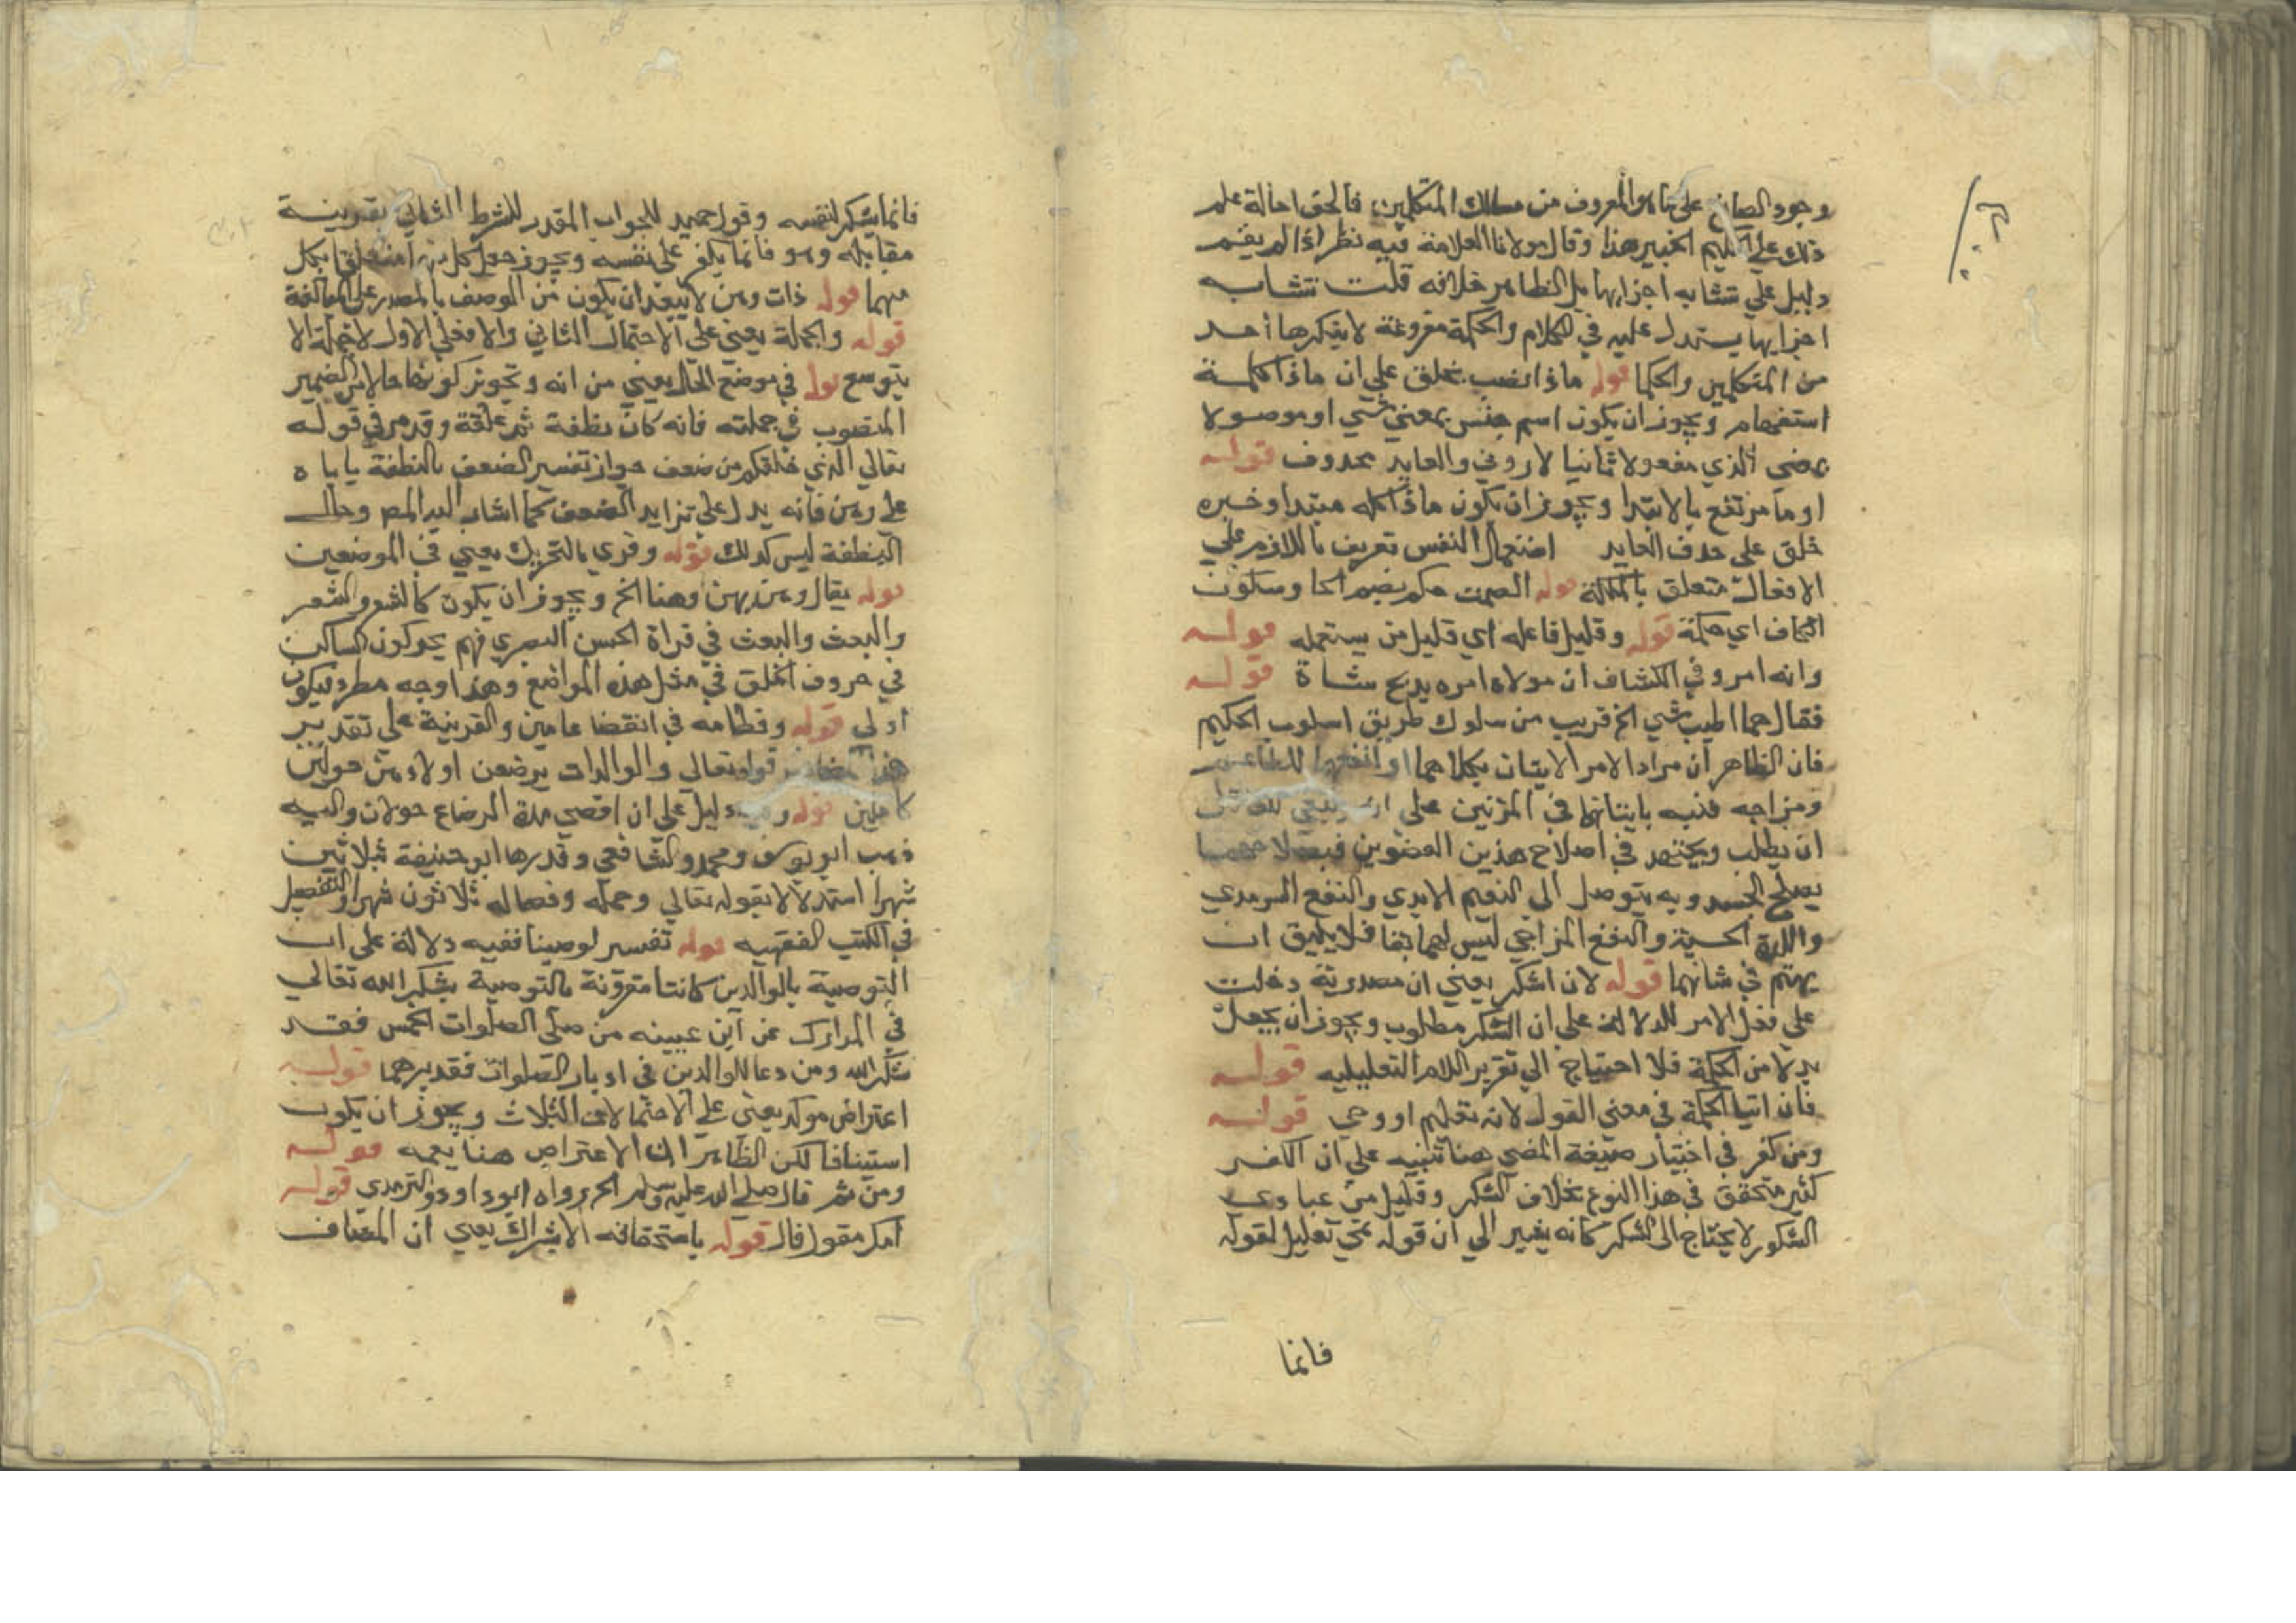 وجود الصانع على ما هو المعروف من مسالك المتكلمين فالحق احالة علم
ذلك على العليم الخبير هذا وقال مولانا العلامة فيه نظر اذ الم يقم
دليل على تشابه اجزايها بل الظاهر خلافه قلت تشابه
اجزايها يستدل عليه في الكلام والحكمة مفروغة لا ينكرها أحد
من المتكلمين والحكما قوله ماذا نصب بخلق على ان ماذا كلمة
استفهام ويجوز ان يكون اسم جنس بمعني شي او موصولا
بمعني الذي مفعولا ثانيا لاروني والعايد محذوف قوله
او ما مرتفع بالابتدا ويجوز ان يكون ماذا كله مبتدا وخبره
خلق على حذف العايد استكمال النفس تعريف باللازم علي
الافعال متعلق بالملكة قوله الصمت حكم بضم الحا وسكون
الكاف اي حكمة قوله وقليل فاعله اي قليل من يستعمله قوله
وانه امر وفي الكشاف ان مولاه امره بذبح شاة قوله
فقال هما اطيب شي الخ قريب من سلوك طريق اسلوب الحكيم
فان الظاهر ان مراد الامر الاتيان بكلاهما او انفعهما للطاعم
ومزاجه فنبه باتيانها في المرتين على ان ينبغي للعاقل
ان يطلب ويجتهد في اصلاح هذين العضوين فبصلاحهما
يصلح الجسد وبه يتوصل الى النعيم الابدي والنفع السرمدي
واللذة الحسية والنفع المزاجي ليس لهما بقا فلا يليق ان
يهتم في شانهما قوله لان اشكر يعني ان مصدرية دخلت
علي فعل الامر للدلالة علي ان الشكر مطلوب ويجوز ان يجعل
بدلا من الحكمة فلا احتياج الي تقرير اللام التعليليه قوله
فان اتيا الحكمة في معني القول لانه تعليم او وحي قوله
ومن كفر في اختيار صيغة المضي هنا تنبيه علي ان الكفر
كثير متحقق في هذا النوع بخلاف الشكر وقليل من عبادي
الشكور لا يحتاج الى الشكر كانه يشير الي ان قوله غني تعليل لقوله
فانما
فانما يشكر لنفسه وقول حميد للجواب المقدر للشرط الثاني بقرينة
مقابله وهو فانما يكفر على نفسه ويجوز جعل كل منهما متعلقا بكل
منهما قوله ذات وهن لا يبعد ان يكون من الوصف بالمصدر على المبالغة
قوله والجملة يعني علي الاحتمال الثاني والا فعلي الاول لا جملة الا
بتوسع قوله في موضع الحال يعني من انه وتجوز كونها حالا من الضمير
المنصوب في حملته فانه كان نطفة ثم علقة وقد مر في قوله
تعالي الذي خلقكم من ضعف جواز تفسير الضعف بالنطفة ياباه
على وهن فانه يدل على تزايد الضعف كما اشار اليه المص وحال
النطفة ليس كذلك قوله وقري بالتحريك يعني في الموضعين
قوله يقال وهن يهن وهنا الخ ويجوز ان يكون كالشعر والشعر
والبعث والبعث في قراة الحسن البصري فهم يحركون الساكن
في حروف الحلق في مثل هذه المواضع وهذا وجه مطرد فيكون
اولي قوله وفطامه في انقضا عامين والقرينة على تقدير
هذا المضاف قوله تعالي والوالدات يرضعن اولادهن حولين
كاملين قوله وفيه دليل على ان اقصى مدة الرضاع حولان واليه
ذهب ابو يوسف ومحمد والشافعي وقدرها ابو حنيفة بثلاثين
شهرا استدلالا بقوله تعالي وحمله وفصاله ثلاثون شهرا والتفصيل
في الكتب الفقهيه قوله تفسير لوصينا ففيه دلالة على ان
التوصية بالوالدين كانتا مقرونة بالتوصية بشكر الله تعالي
في المدارك عن ابن عيينه من صلى الصلوات الخمس فقد
شكر الله ومن دعا للوالدين في ادبار الصلوات فقد برهما قوله
اعتراض موكد يعني علي الاحتمالات الثلاث ويجوز ان يكون
استينافا لكن الظاهر ان الاعتراض هنا يعمه قوله
ومن ثم قال صلى الله عليه وسلم الخ رواه ابو داود والترمذي قوله
امك مقول قال قوله باستحقاقه الاشراك يعني ان المضاف